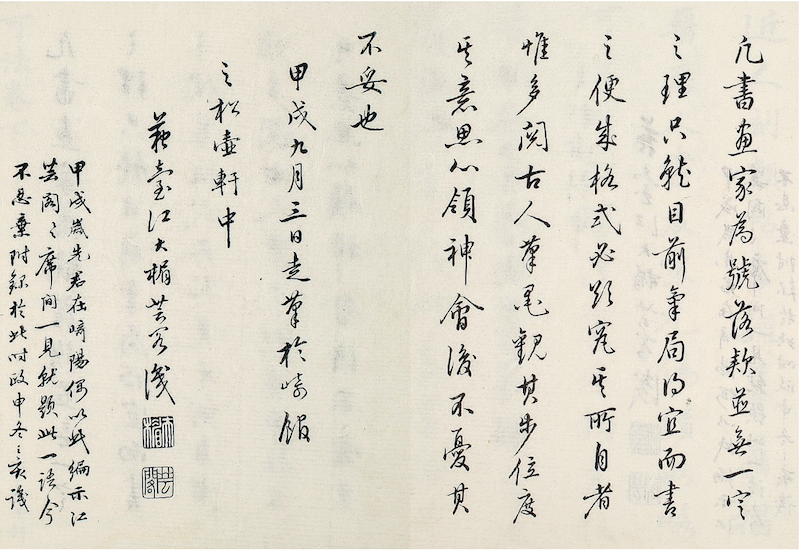 凡書画家為號落款並無一定
之理只就目前氣局得宜而書
之便成格式必欲究其所自者
惟多閲古人筆墨観其步位度
其意思心領神會後不憂其
不妥也
甲戌九月三日走筆於崎館
之松壺軒中
蘓臺江大楣芸閣識
甲戌歳先君在崎陽偶以此編示江
芸閣々席間一見就題此一語今
不忍棄附録於此時政申冬之